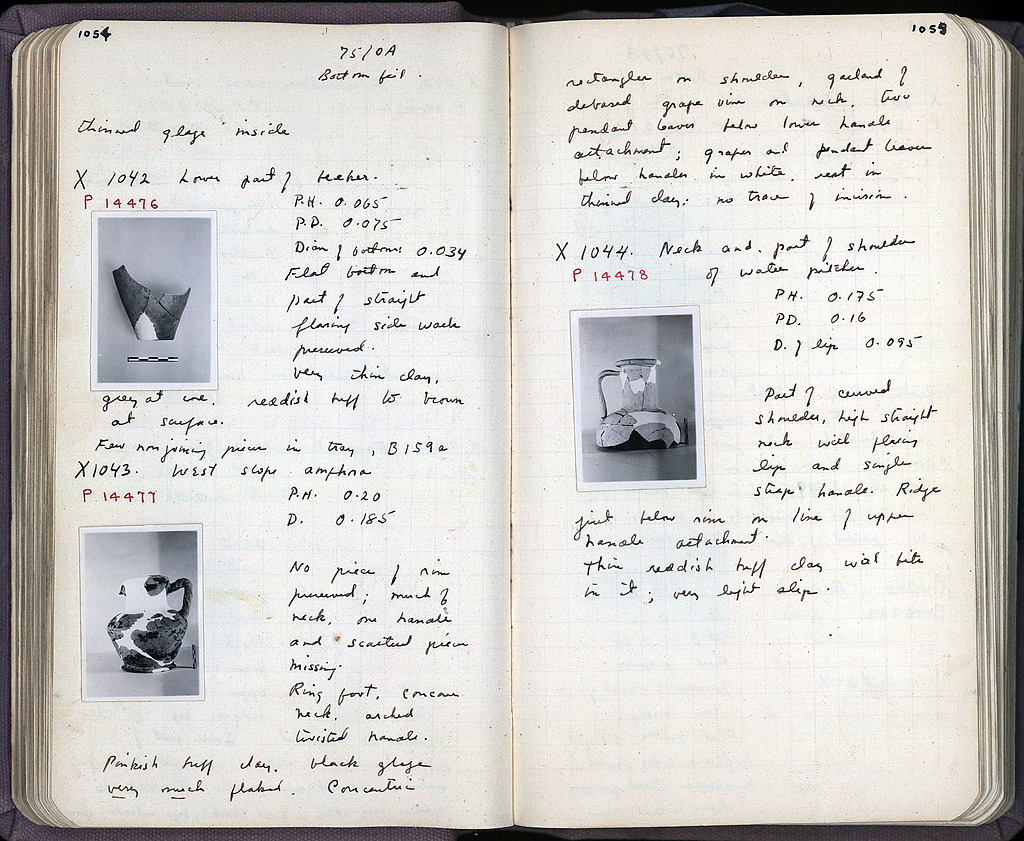 1054
75/ΟΑ
Bottom fill.
thinned glaze inside
X 1042 Lower part of beaker.
P 14476
P.H. 0.065
P.D. 0.075
Diam of bottom: 0.034
Flat bottom and
part of straight
flaring side walls
preserved.
very thin clay,
grey at core, reddish buff to brown
at surface.
Few nonjoining pieces in tray, B159a
X1043. West slope amphora
P 14477
P.H. 0.20
D. 0.185
No piece of rim
preserved; much of
neck, one handle
and scattered pieces
missing.
Ring foot, concave
neck, arched
twisted handle.
Pinkish buff clay, black glaze
very much flaked. Concentric
1055
rectangles on shoulder, garland of
debased grape vine on neck, two
pendant leaves below lower handle
attachment; grapes and pendant leaves
below handles in white, rest in
thinned clay: no trace of incision.
X 1044. Neck and part of shoulder
P 14478 of water pitcher.
PH. 0.175
PD. 0.16
D. of lip 0.095
Part of curved
shoulder, high straight
neck with flaring
lip and single
strap handle. Ridge
just below rim on line of upper
handle attachment.
Thin reddish buff clay with bits
in it; very light slip.